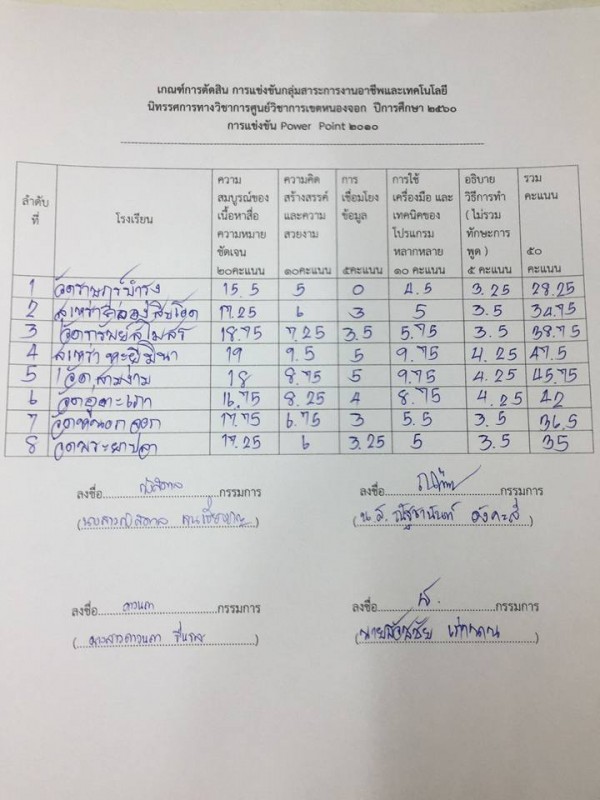 เกณฑ์การตัดสิน การแข่งขันกลุ่มสาระการงานอาชีพและเทคโนโลยี
นิทรรศการทางวิชาการศูนย์วิชาการเขตหนองจอก ปีการศึกษา ๒๕๖๐
การแข่งขัน Power Point ๒๐๑๐
ลำดับที่ โรงเรียน ความสมบูรณ์ของเนื้อหาสื่อความหมายชัดเจน ๒๐คะแนน ความคิดสร้างสรรค์และความสวยงาม ๑๐คะแนน การเชื่อมโยงข้อมูล ๕คะแนน การใช้เครื่องมือ และเทคนิคของโปรแกรมหลากหลาย ๑๐ คะแนน อธิบายวิธีการทำ ( ไม่รวมทักษะการพูด ) ๕ คะแนน รวมคะแนน ๕๐ คะแนน
1 วัดราษฎร์บำรุง 15.5 5 0 4.5 3.25 28.25
2 สุเหร่าคลองสิบเอ็ด 17.25 6 3 5 3.5 34.75
3 วัดทรัพย์สโมสร 18.75 7.25 3.5 5.75 3.5 38.75
4 สุเหร่าหะยีมินา 19 9.5 5 9.75 4.25 47.5
5 วัดสามง่าม 18 8.75 5 9.75 4.25 45.75
6 วัดอู่ตะเภา 16.75 8.25 4 8.75 4.25 42
7 วัดหนองจอก 17.75 6.75 3 5.5 3.5 36.5
8 วัดพระยาปลา 17.25 6 3.25 5 3.5 35
ลงชื่อ กรรมการ ลงชื่อ กรรมการ
(นางสาว ) (น.ส. ณัฐชานันท์ )
ลงชื่อ กรรมการ ลงชื่อ ส. กรรมการ
(นางสาว ) (นาย )